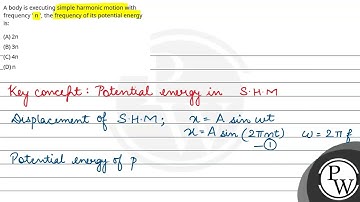 A body is executing simple harmonic motion with
frequency 'n', the frequency of its potential energy
is:
(A) 2n
(B) 3n
(C) 4n
(D) n
Key concept: Potential energy in S.H.M
Displacement of S.H.M; x = A sin ωt
x = A sin (2πnt) ω = 2πf
—①
Potential energy of p
PW